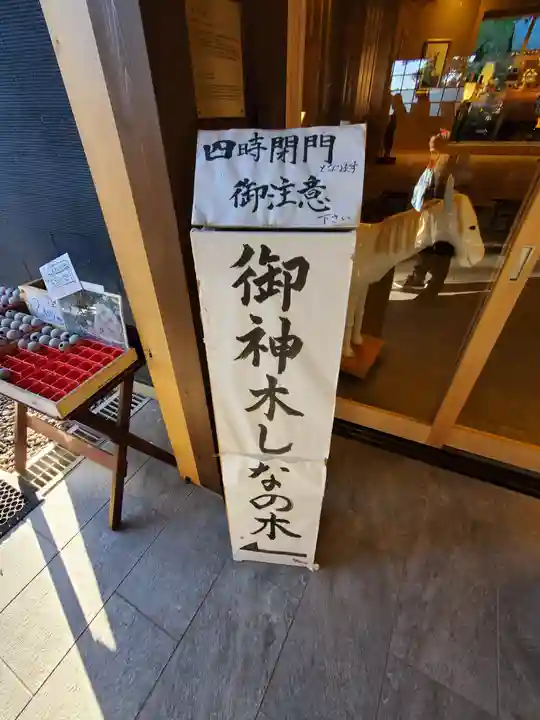 四時閉門
となります
御注意
下さい
御神木しなの木